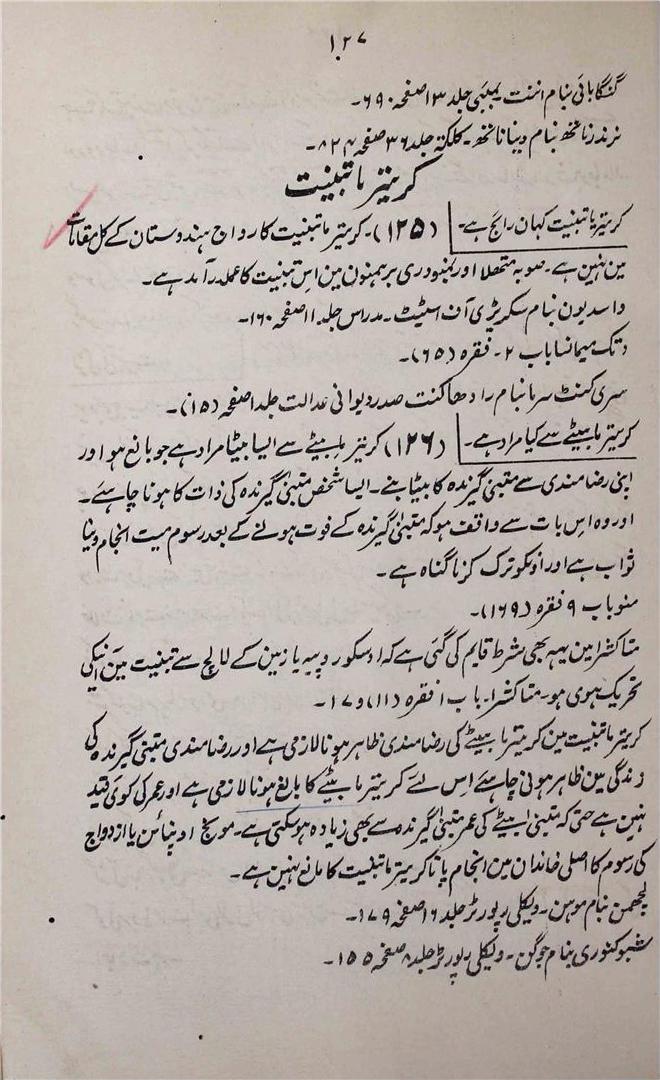 ۱۲۷
گنگابائی بنام اننت۔ بمبئی جلد ۱۳ صفحہ ۶۹۰۔
نرندرناتھ بنام دیناناتھ۔ کلکتہ جلد ۳۶ صفحہ ۸۲۴۔
کریترما تبنیت
کریترما تبنیت کہان رائج ہے۔ (۱۲۵)۔ کریترما تبنیت کا رواج ہندوستان کے کل مقامات
مین نہین ہے۔ صوبہ متھلا اور نمبودری برہمنون مین اس تبنیت کا عملدرآمد ہے۔
واسدیون بنام سکریٹری آف اسٹیٹ۔ مدراس جلد ۱۱ صفحہ ۱۶۰۔
دتک میمانسا باب ۲۔ فقرہ (۶۵)۔
سری کنٹ سرما بنام رادھاکنت صدر دیوانی عدالت جلد ۱ صفحہ (۱۵)۔
کریترما بیٹے سے کیا مراد ہے۔ (۱۲۶) کریترما بیٹے سے ایسا بیٹا مراد ہے جو بالغ ہو اور
اپنی رضامندی سے متبنیٰ گیرندہ کا بیٹا بنے۔ ایسا شخص متبنیٰ گیرندہ کی ذات کا ہونا چاہئے۔
اور وہ اس بات سے واقف ہو کہ متبنیٰ گیرندہ کے فوت ہونے کے بعد رسوم میت انجام دینا
ثواب ہے اور اونکو ترک کرنا گناہ ہے۔
منو باب ۹ فقرہ (۱۶۹)۔
متاکشرا مین یہہ بھی شرط قایم کی گئی ہے کہ اوسکو روپیہ یا زمین کے لالچ سے تبنیت مین آنیکی
تحریک ہوی ہو۔ متاکشرا۔ باب ۱ فقرہ (۱۱) و ۱۷۔
کریترما تبنیت مین کریترما بیٹے کی رضامندی ظاہر ہونا لازمی ہے اور رضامندی متبنیٰ گیرندہ کی
زندگی مین ظاہر ہونی چاہئے اس لئے کریترما بیٹے کا بالغ ہونا لازمی ہے اور عمر کی کوی قید
نہین ہے حتی کہ متبنیٰ بیٹے کی عمر متبنیٰ گیرندہ سے بھی زیادہ ہوسکتی ہے۔ مونج اوپنائن یا ازدواج
کی رسوم کا اصلی خاندان مین انجام پانا کریترما تبنیت کا مانع نہین ہے۔
لچھمن بنام موہن۔ ویکلی رپورٹر جلد ۱۶ صفحہ ۱۷۹۔
شبو کنوری بنام جوگن۔ ویکلی رپورٹر جلد ۸ صفحہ ۱۵۵۔